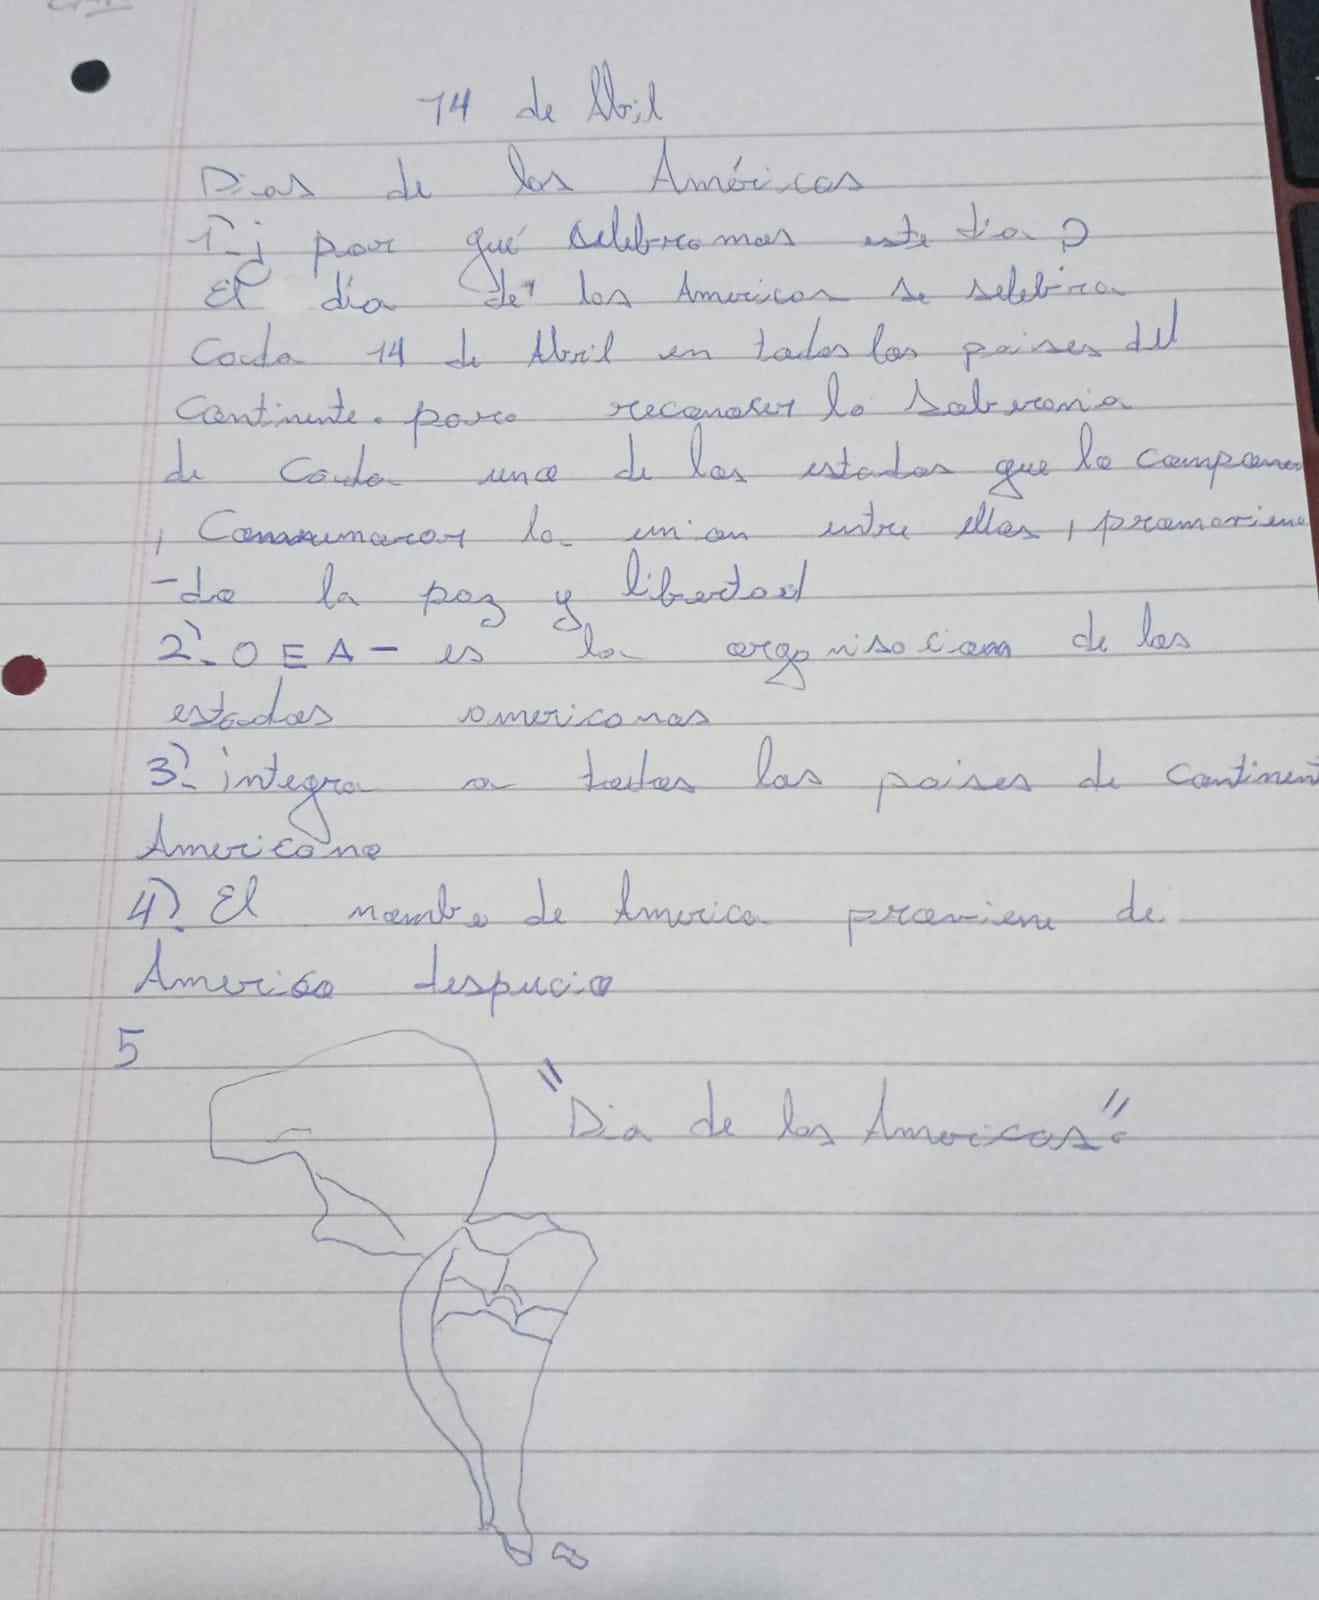 14 de Abril
Dias de las Américas
1)-¿ por qué selebramos este dia?
El dia de las Americas se selebra
Cada 14 de Abril en todos los paises del
Continente. para reconoser la soberania
de Cada uno de los estados que lo componen
, la union entre ellos, promoviene
-do la paz y libertad
2)-OEA- es la organisacion de los
estados americanos
3)-integra a todos los paises de continent
Americano
4)-El nombre de America proviene de
Americo despucio
5
"Dia de las Americas".